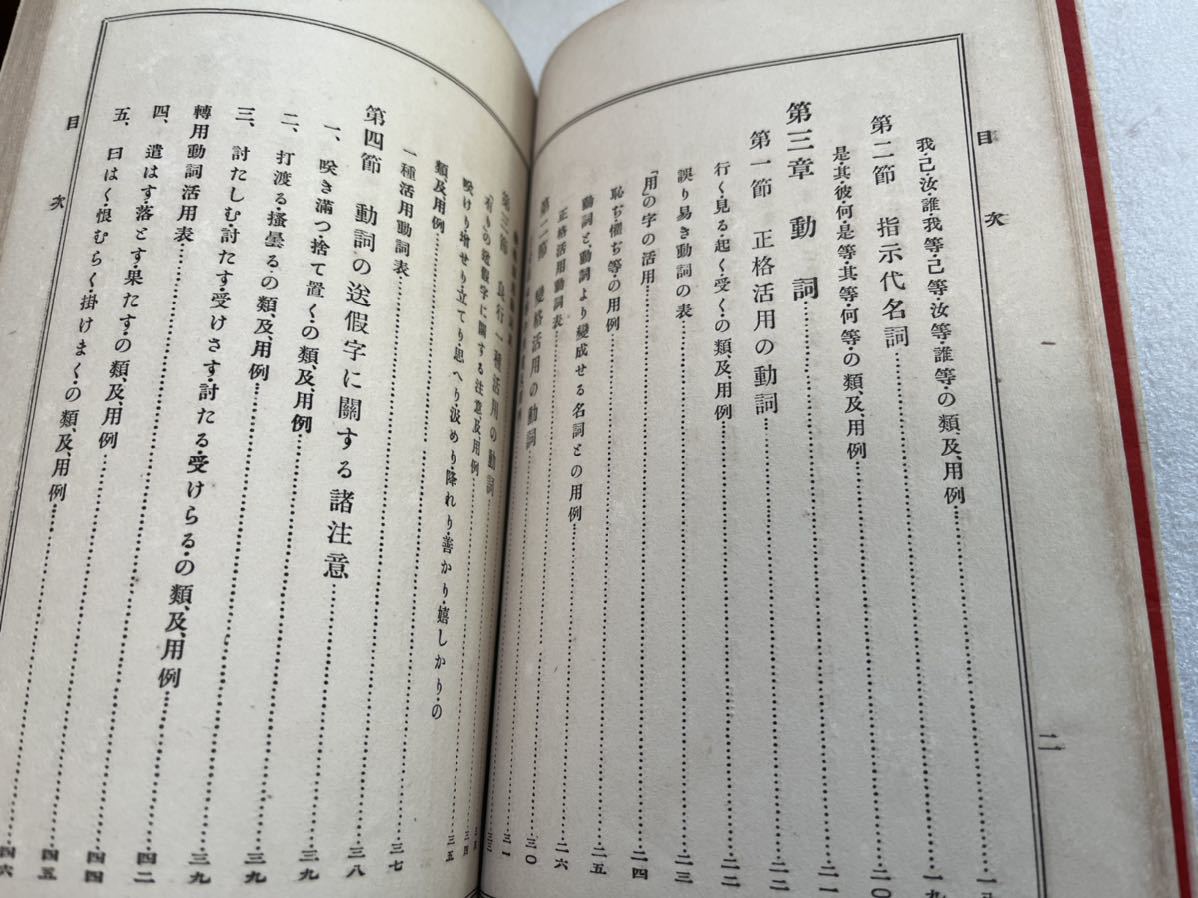 目次
二
我・己・汝・誰・我等・己等・汝等・誰等・の類及、用例
第二節 指示代名詞 一九
是・其・彼・何・是等・其等・何等・の類及、用例 二〇
第三章 動詞 二一
第一節 正格活用の動詞 二二
行く・見る・起く・受くの類及、用例 二二
誤り易き動詞の表 二三
「用」の字の活用 二四
恥ぢ・懼ぢ等・の用例 二五
動詞と、動詞より變成せる名詞との用例 二六
正格活用動詞表 三〇
第二節 變格活用の動詞 三一
第三節 良行一種活用の動詞
有りの送假字に關する注意、及、用例
咲けり・增せり・立てり・思へり・汲めり・降れり・善かり・嬉しかり・の
類、及、用例 三五
一種活用動詞表 三七
第四節 動詞の送假字に關する諸注意 三八
一、咲き滿つ・捨て置く・の類、及、用例 三九
二、打渡る・搔曇るの類、及、用例 三九
三、討たしむ・討たす・受けさす・討たる・受けらる・の類、及、用例 三九
轉用動詞活用表 四二
四、遣はす・落とす・果たす・の類、及、用例 四四
五、曰はく・恨むらく・掛けまく・の類、及、用例 四五
四六
目次